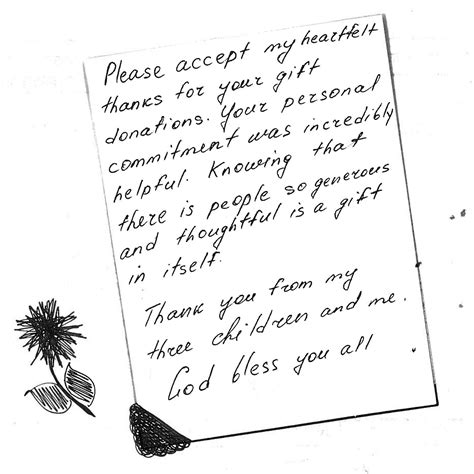 Please accept my heartfelt
thanks for your gift
donations. Your personal
commitment was incredibly
helpful. Knowing that
there is people so generous
and thoughtful is a gift
in itself.
Thank you from my
three children and me.
God bless you all